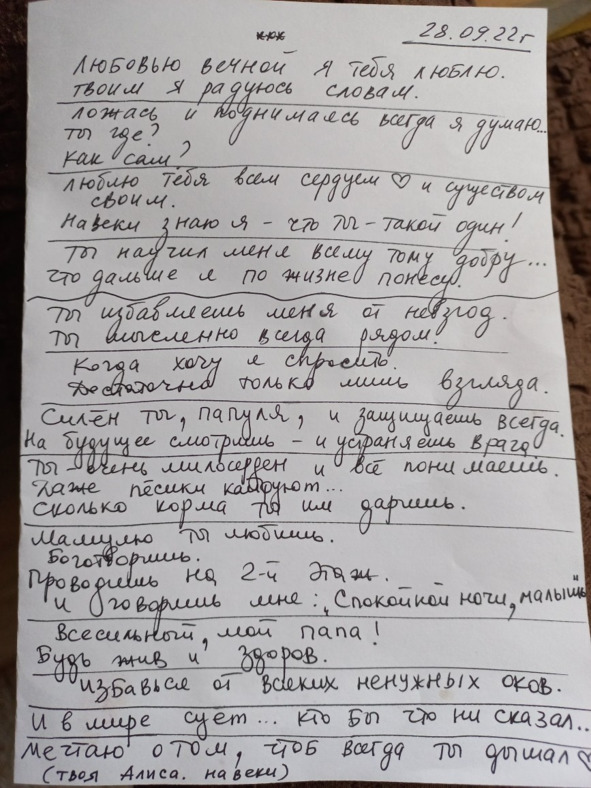 28.09.22г
***
Любовью вечной я тебя люблю.
Твоим я радуюсь словам.
Ложась и поднимаясь всегда я думаю...
Ты где?
Как сам?
Люблю тебя всем сердцем ♡ и существом
своим.
Навеки знаю я - что ты - такой один!
Ты научил меня всему тому добру...
что дальше я по жизне понесу.
Ты избавляешь меня от невзгод.
Ты мысленно всегда рядом.
Когда хочу я спросить.
Достаточно только лишь взгляда.
Силён ты, папуля, и защищаешь всегда.
На будущее смотришь - и устраняешь врага
Ты - очень милосерден и всё понимаешь.
Даже пёсики кайфуют...
Сколько корма ты им даришь.
Мамулю ты любишь.
Боготворишь.
Проводишь на 2-й этаж.
и говоришь мне: „Спокойной ночи, малыш"
Всесильный, мой папа!
Будь жив и здоров.
Избавься от всяких ненужных оков.
И в мире сует... кто бы что ни сказал..
Мечтаю о том, чтоб всегда ты дышал ♡
(твоя Алиса. навеки)